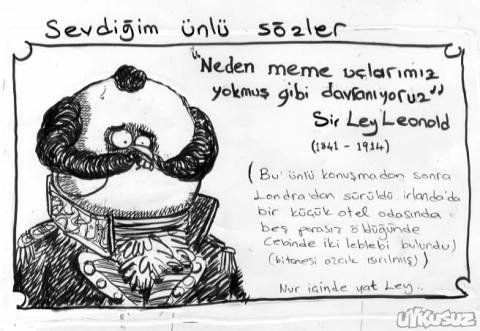 Sevdiğim ünlü sözler
"Neden meme uçlarımız
yokmuş gibi davranıyoruz"
Sir Ley Leonold
(1841 - 1914)
( Bu ünlü konuşmadan sonra
Londra'dan sürüldü irlanda'da
bir küçük otel odasında
beş parasız öldüğünde
cebinde iki leblebi bulundu)
(bitanesi azcık ısırılmış) )
Nur içinde yat Ley..
UYKUSUZ